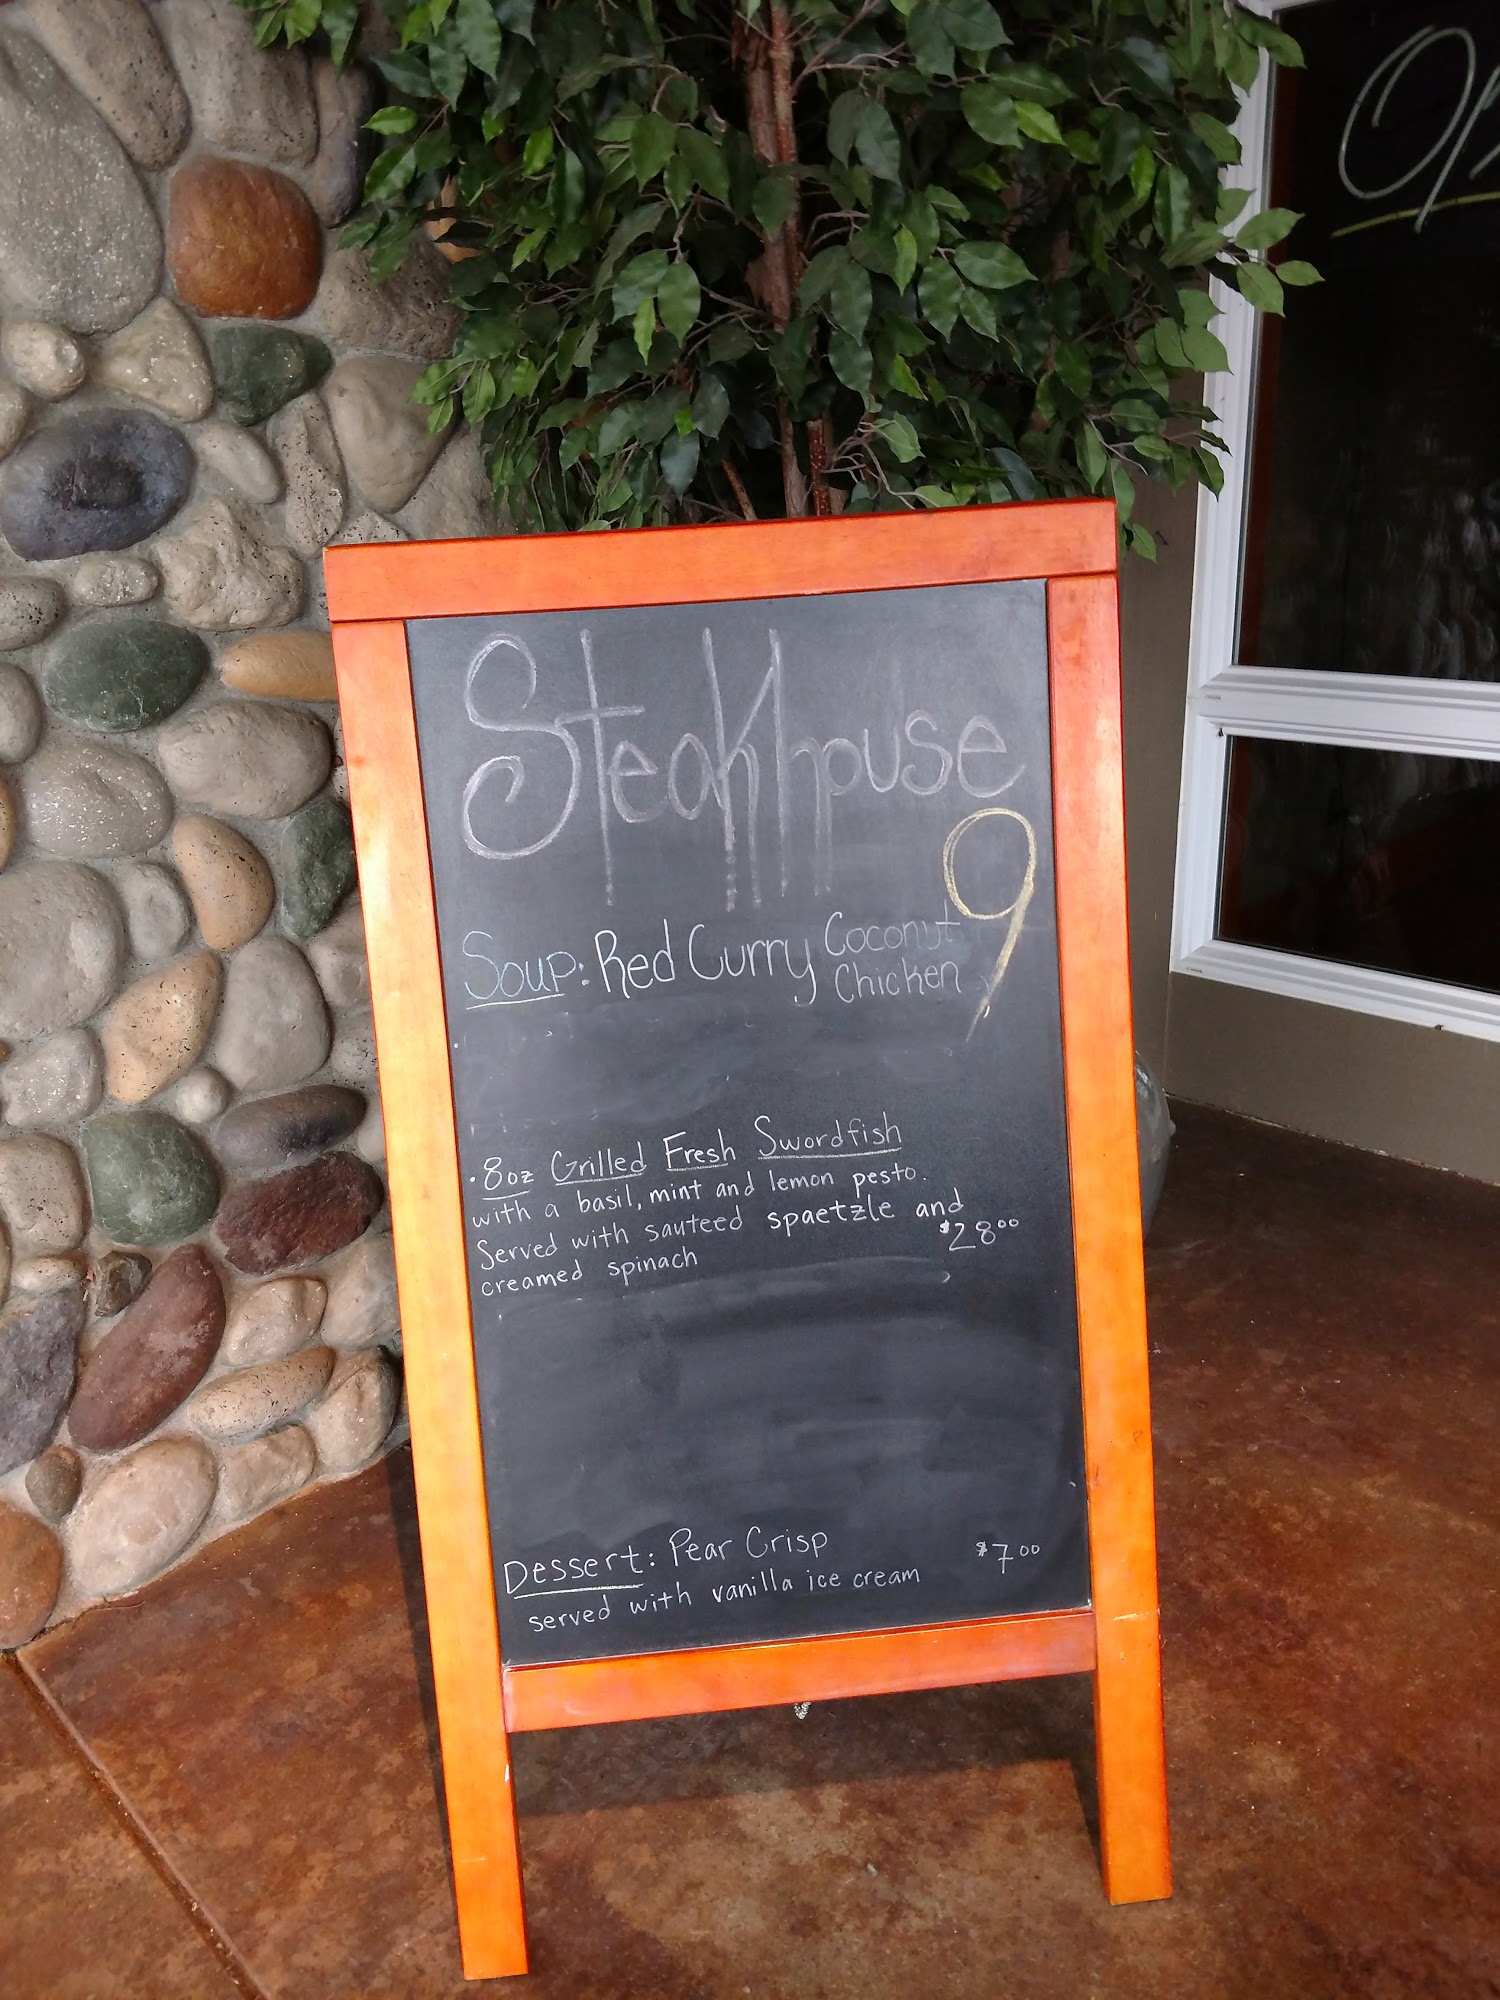 Steakhouse
9
Soup: Red Curry Coconut
Chicken
• 8oz Grilled Fresh Swordfish
with a basil, mint and lemon pesto.
Served with sauteed spaetzle and
creamed spinach $28.00
Dessert: Pear Crisp $7.00
served with vanilla ice cream